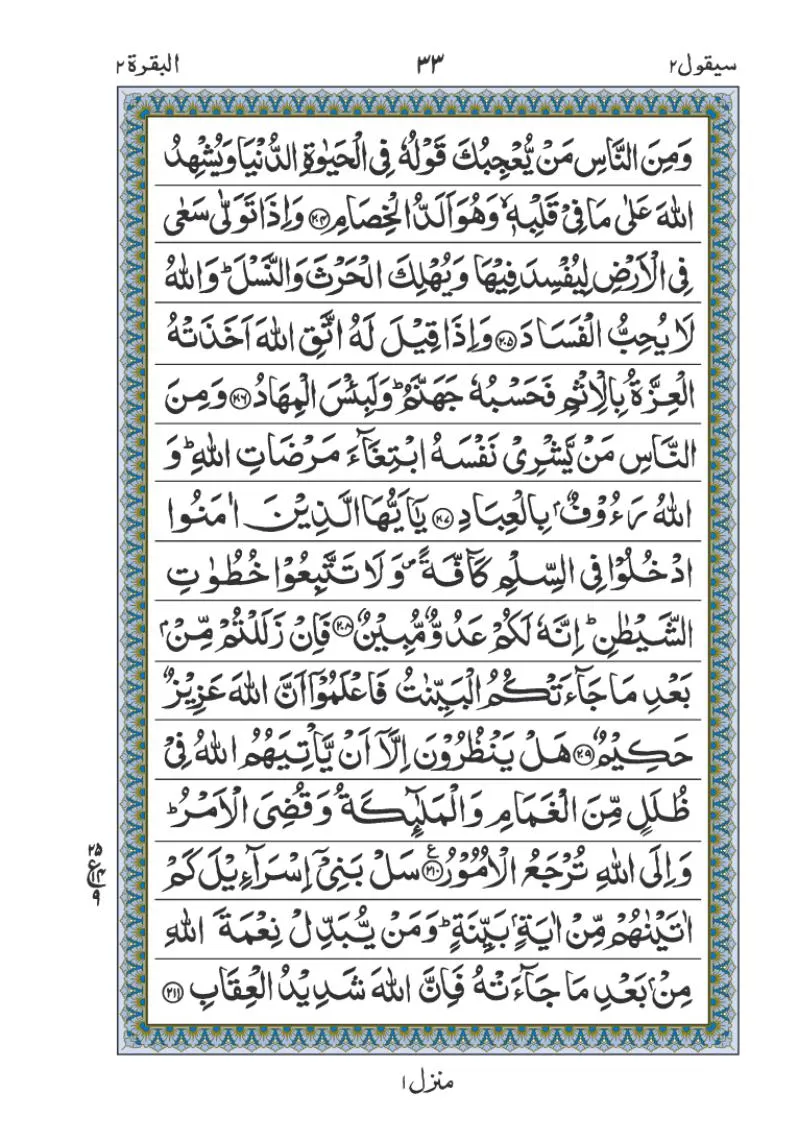 سيقول ٢ ٣٣ البقرة ٢
وَمِنَ النَّاسِ مَنْ يُّعْجِبُكَ قَوْلُهٗ فِى الْحَيٰوةِ الدُّنْيَا وَيُشْهِدُ
اللّٰهَ عَلٰى مَا فِىْ قَلْبِهٖ ۙ وَهُوَ اَلَدُّ الْخِصَامِ ﴿۲۰۴﴾ وَاِذَا تَوَلّٰى سَعٰى
فِى الْاَرْضِ لِيُفْسِدَ فِيْهَا وَيُهْلِكَ الْحَرْثَ وَالنَّسْلَ ؕ وَاللّٰهُ
لَا يُحِبُّ الْفَسَادَ ﴿۲۰۵﴾ وَاِذَا قِيْلَ لَهُ اتَّقِ اللّٰهَ اَخَذَتْهُ
الْعِزَّةُ بِالْاِثْمِ فَحَسْبُهٗ جَهَنَّمُ ؕ وَلَبِئْسَ الْمِهَادُ ﴿۲۰۶﴾ وَمِنَ
النَّاسِ مَنْ يَّشْرِىْ نَفْسَهُ ابْتِغَآءَ مَرْضَاتِ اللّٰهِ ؕ وَ
اللّٰهُ رَءُوْفٌۢ بِالْعِبَادِ ﴿۲۰۷﴾ يٰٓاَيُّهَا الَّذِيْنَ اٰمَنُوا
ادْخُلُوْا فِى السِّلْمِ كَآفَّةً ۪ وَلَا تَتَّبِعُوْا خُطُوٰتِ
الشَّيْطٰنِ ؕ اِنَّهٗ لَكُمْ عَدُوٌّ مُّبِيْنٌ ﴿۲۰۸﴾ فَاِنْ زَلَلْتُمْ مِّنْۢ
بَعْدِ مَا جَآءَتْكُمُ الْبَيِّنٰتُ فَاعْلَمُوْٓا اَنَّ اللّٰهَ عَزِيْزٌ
حَكِيْمٌ ﴿۲۰۹﴾ هَلْ يَنْظُرُوْنَ اِلَّآ اَنْ يَّاْتِيَهُمُ اللّٰهُ فِىْ
ظُلَلٍ مِّنَ الْغَمَامِ وَالْمَلٰٓئِكَةُ وَقُضِىَ الْاَمْرُ ؕ
وَاِلَى اللّٰهِ تُرْجَعُ الْاُمُوْرُ ﴿۲۱۰﴾ ع سَلْ بَنِىْٓ اِسْرَآءِيْلَ كَمْ
اٰتَيْنٰهُمْ مِّنْ اٰيَةٍۭ بَيِّنَةٍ ؕ وَمَنْ يُّبَدِّلْ نِعْمَةَ اللّٰهِ
مِنْۢ بَعْدِ مَا جَآءَتْهُ فَاِنَّ اللّٰهَ شَدِيْدُ الْعِقَابِ ﴿۲۱۱﴾
٢٥
ع ١٤
٩
منزل ١